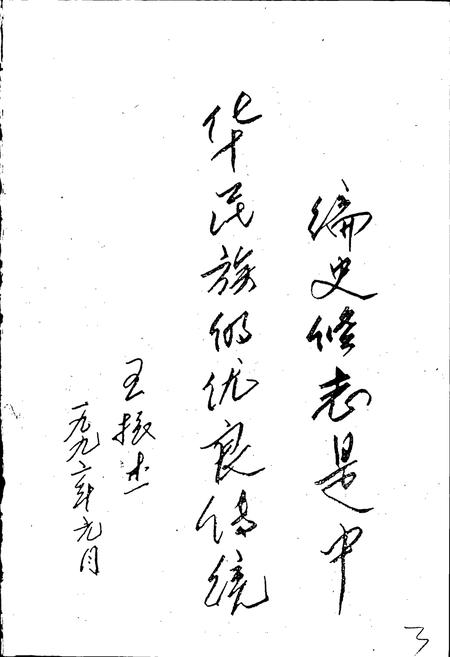 编史修志是中
华民族的优良传统
王振杰
一九九二年元月
3